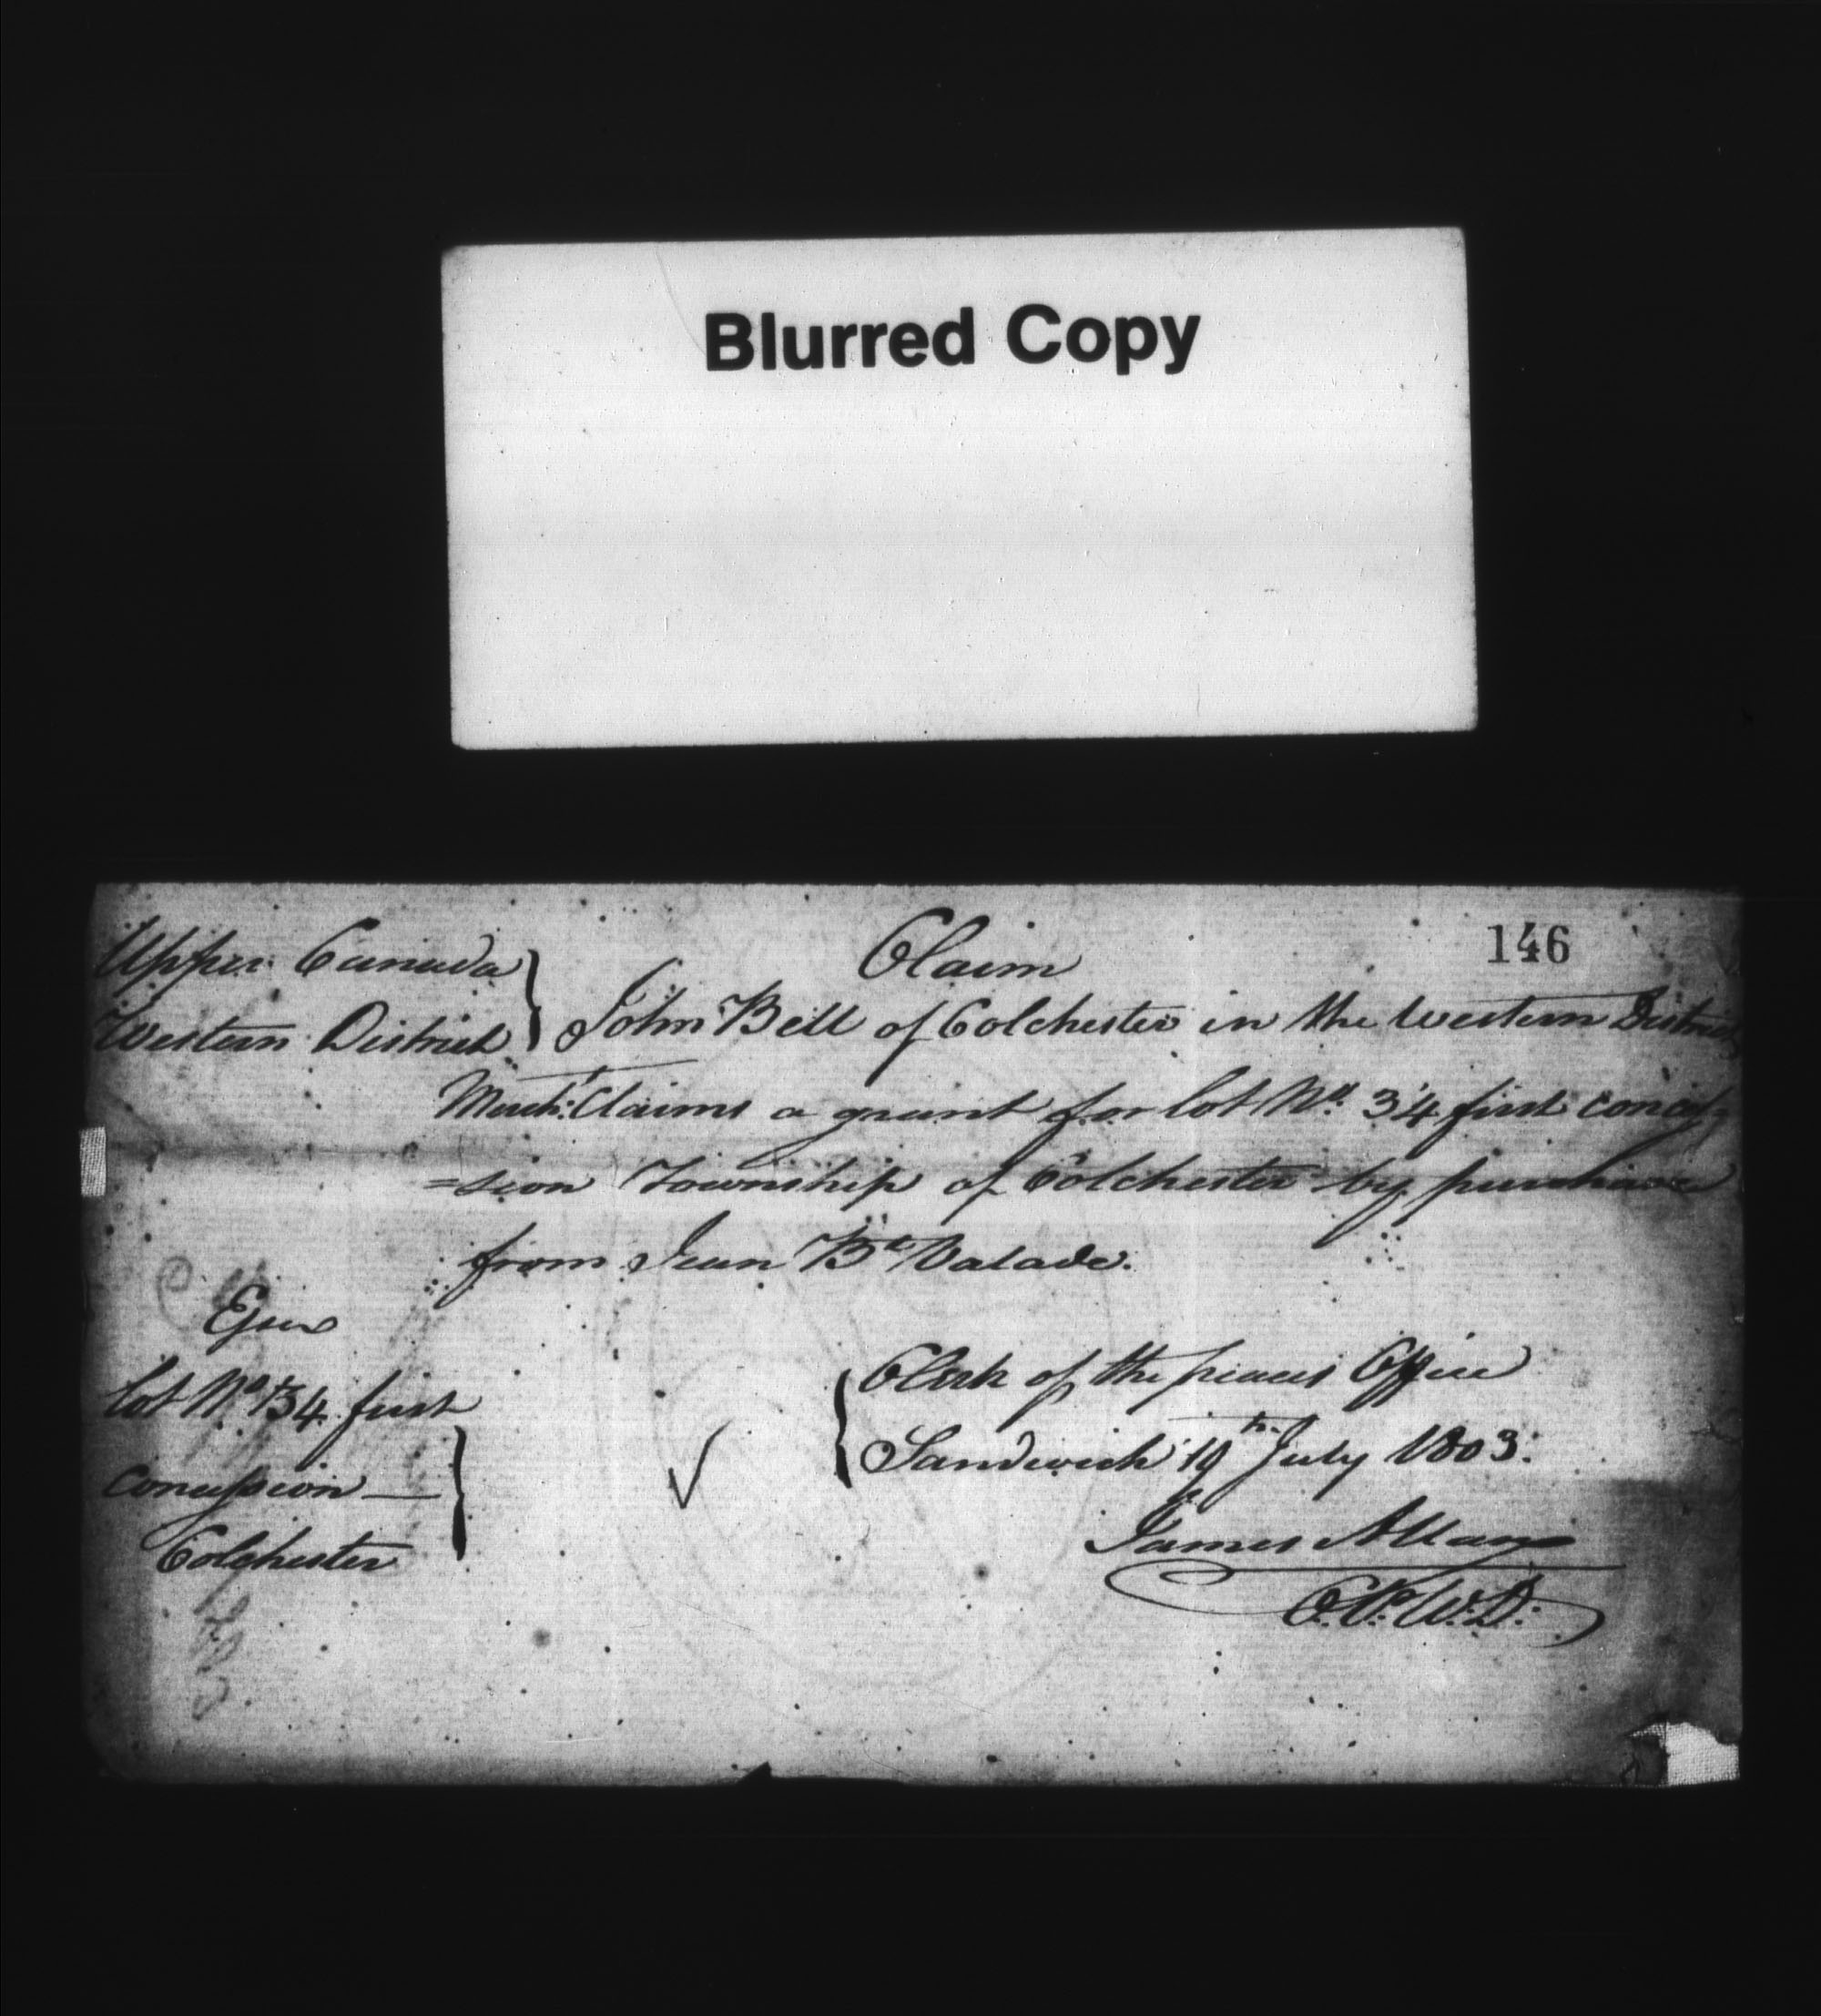 Blurred Copy
146
Claim
Upper Canada
Western District
John Bell of Colchester in the Western District
Mercht: Claims a grant for lot No. 34 first conces
=sion Township of Colchester by purchase
from Jean Bte Valade.
Essex
lot No. 34 first
concession —
Colchester
Clerk of the peaces Office
Sandwich 19th July 1803.
James Allan
C.P.W.D.